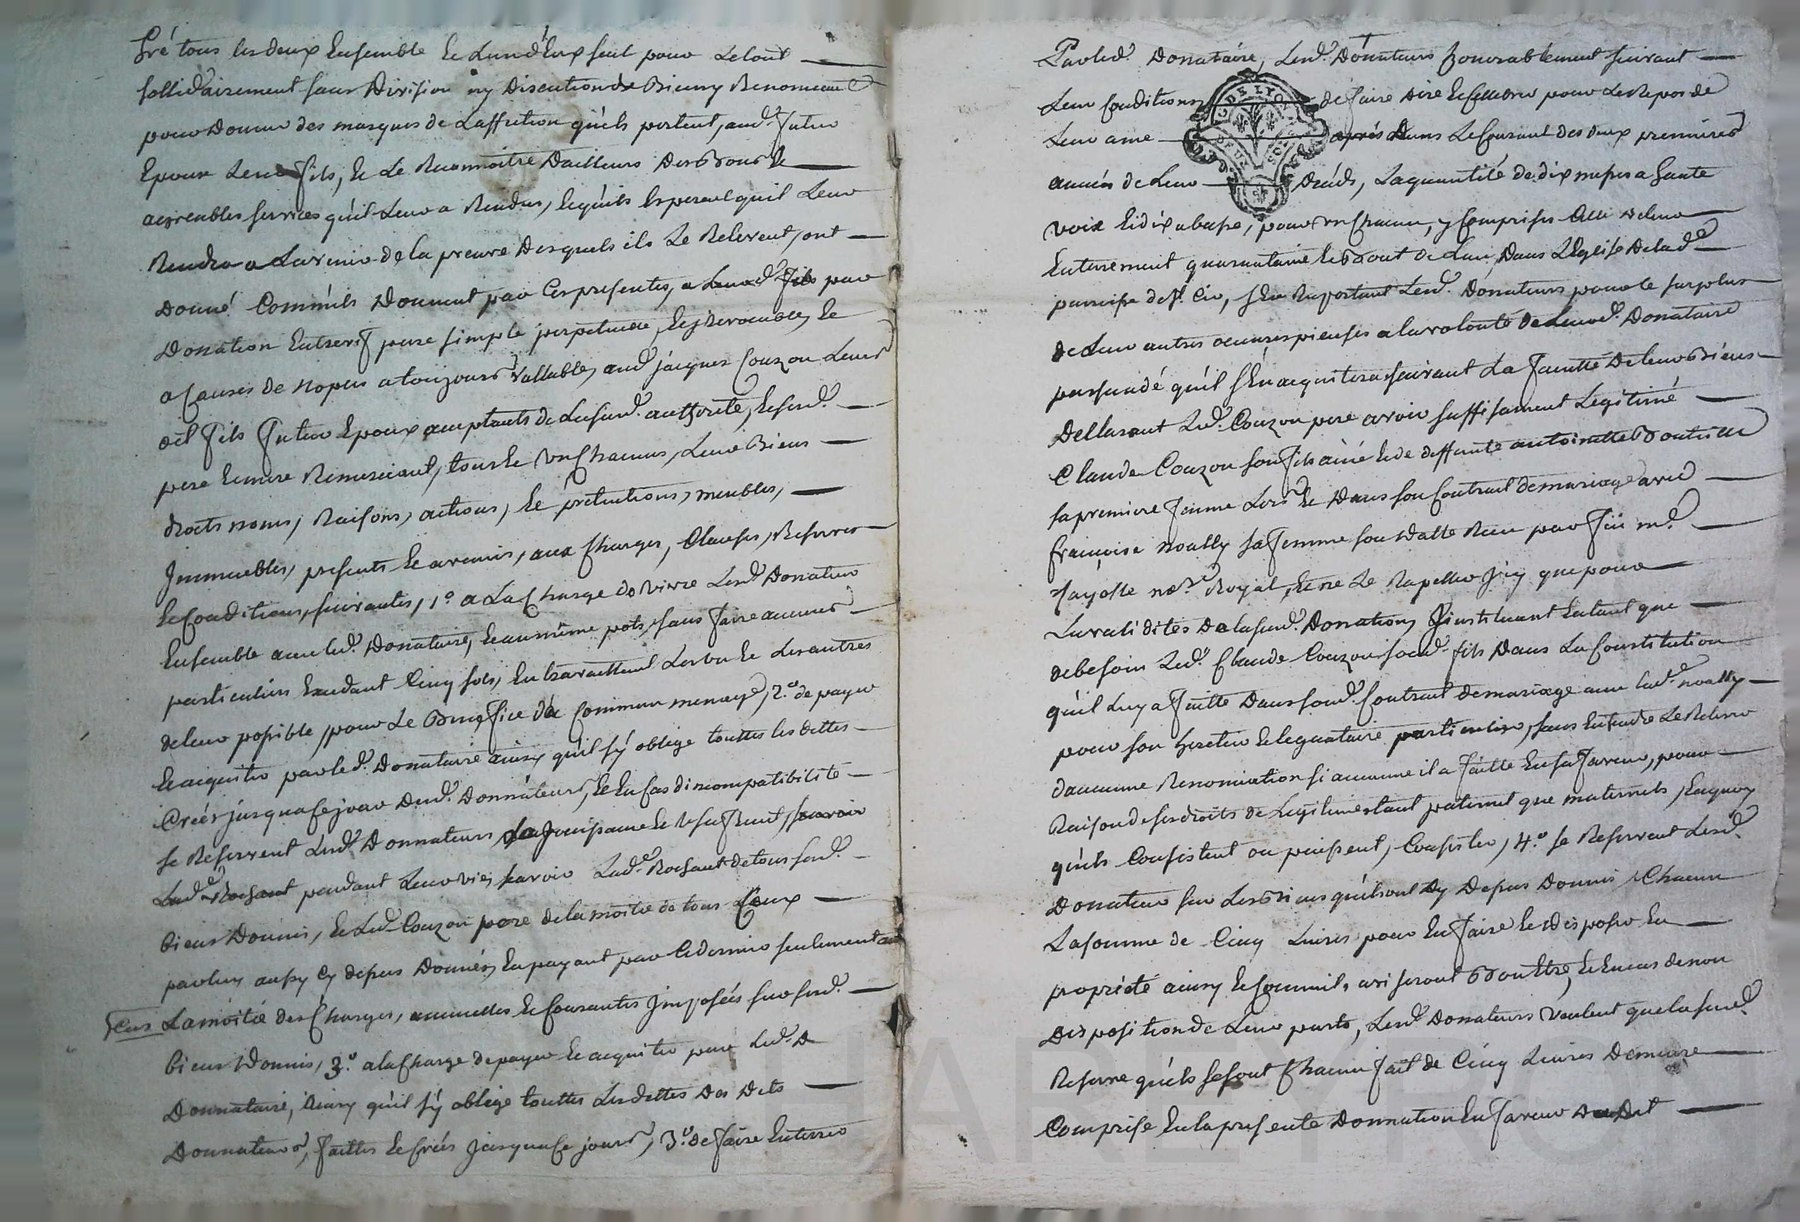 Gré tous les deux Ensemble Et Lun d'Eux seul pour Le tout
sollidairement sans Division ny Discution de Bieny Renomeme
pour Donner des marques de Laffection quils portent, aud. futur
Epoux Leur fils, Et Le Reconnoitre Dailleurs Des Bons Et
agreables services quil Leur a Rendus, Et quils Esperent quil Leur
Rendra a Lavenir de la preuve Desquels ils Le Relevent, ont
Donné Comm'ils Donnent par Ces presentes, a Leurd. fils par
Donation Entrevif pure simple perpetuelle, Et jrrevocable, Et
a Causes de Nopces a toujours vallable, aud. jacques Couzon Leur
dit fils futur Epoux acceptants de Lesurd. authorité, Lesurd.
pere Et mere Remerciant, tous Et Un Chacuns, Leurs Biens
droits noms, Raisons, actions, Et prétentions, meubles,
Immeubles, presents Et avenir, aux Charges, Clauses, Reserves
Et Conditions, suivantes, 1° a La Charge de Vivre Lesd. Donateurs
Ensemble avec led. Donataire, Et au même pots, sans faire aucuns
particuliers Excedant Cinq sols, En travaillent Les Un Et Les autres
de leur possible, pour Le Benefice du Commun menage, 2° de payer
Et acquitter par led. Donataire ainsy quil s'y oblige touttes les dettes
Créés jusqua ce jour desd. Donnateurs, Et En Cas dincompatibilité
se Reservent Lesd. Donnateurs, La Jouissance Et Usufruit, scavoir
Lad. Rochant pendant Leurs vies scavoir Lad. Rochant de tous sesd.
biens Donnés, Et Led. Couzon pere de la moitié de tous Ceux
par luy aussy Cy dessus Donnés, En payant par Ce dernier seulement
Lamoitié des Charges, annuelles Et Courantes Jmposées sur sesd.
biens Donnés, 3° a la Charge de payer Et acquitter par Led. D
Donnataire, ainsy quil s'y oblige touttes Les dettes Des Dits
Donnateurs, faittes Et Créés Jusqua Ce jours, 3° de faire Enterrer
Par led. Donataire, Lesd. Donateurs honorablement suivant
Leur Conditions de faire Dire Et Cellebrer pour Le Repos de
Leur ame après Dans Le Courant des deux premieres
années de Leur Décés, La quantité de dix messes a haute
voix Et dix a basse, pour Un Chacun, y Comprises Celle De leur
Enterrement quarantaine Et Bout de Lan, Dans Léglise De lad.
parroisse de St. Cir, s'En Raportant Lesd. Donateurs pour le surplus
de Leur autres oeuvres pieuses a la volonté de Leurd. Donataire
persuadé qu'il s'En acquittera suivant La faculté De leur Biens
Declarant Led. Couzon pere avoir suffisament Legitimé
Claude Couzon son fils aîné Et de deffunte antoinette
sa premiere femme Lors Et Dans son Contract de mariage avec
françoise noally sa femme sous Datte Reçu par feu m.e
no.re Royal, Et ne Le Rapeller Jcy que pour
La validités De la surd. Donation, Jinstituant En tant que
de besoin Led. Claude Couzon sond. fils Dans La Constitution
quil Luy a faitte Dans sond. Contract de mariage avec lad. noally
pour son heretier Et legataire particulier, sans Entendre Le Relever
daucune Renonciation si aucune il a faitte En sa faveur, pour
Raison de ses droits de Legitimes tant paternel que maternels, En quoy
qu'ils Consistent ou puissent, Consister, 4° se Reservent Lesd.
Donateurs sur Les Biens quils ont Cy Dessus Donnés Chacun
La somme de Cinq Livres pour En faire Et Disposer En
propriété ainsy Et Comme il aviseront Bon Etre, Et En Cas de non
Disposition de Leur parts, Lesd. Donateurs veulent que la surd.
Reserve qu'ils se sont Chacun fait de Cinq Livres Demeure
Comprise En la presente Donnation En faveur Du Dit